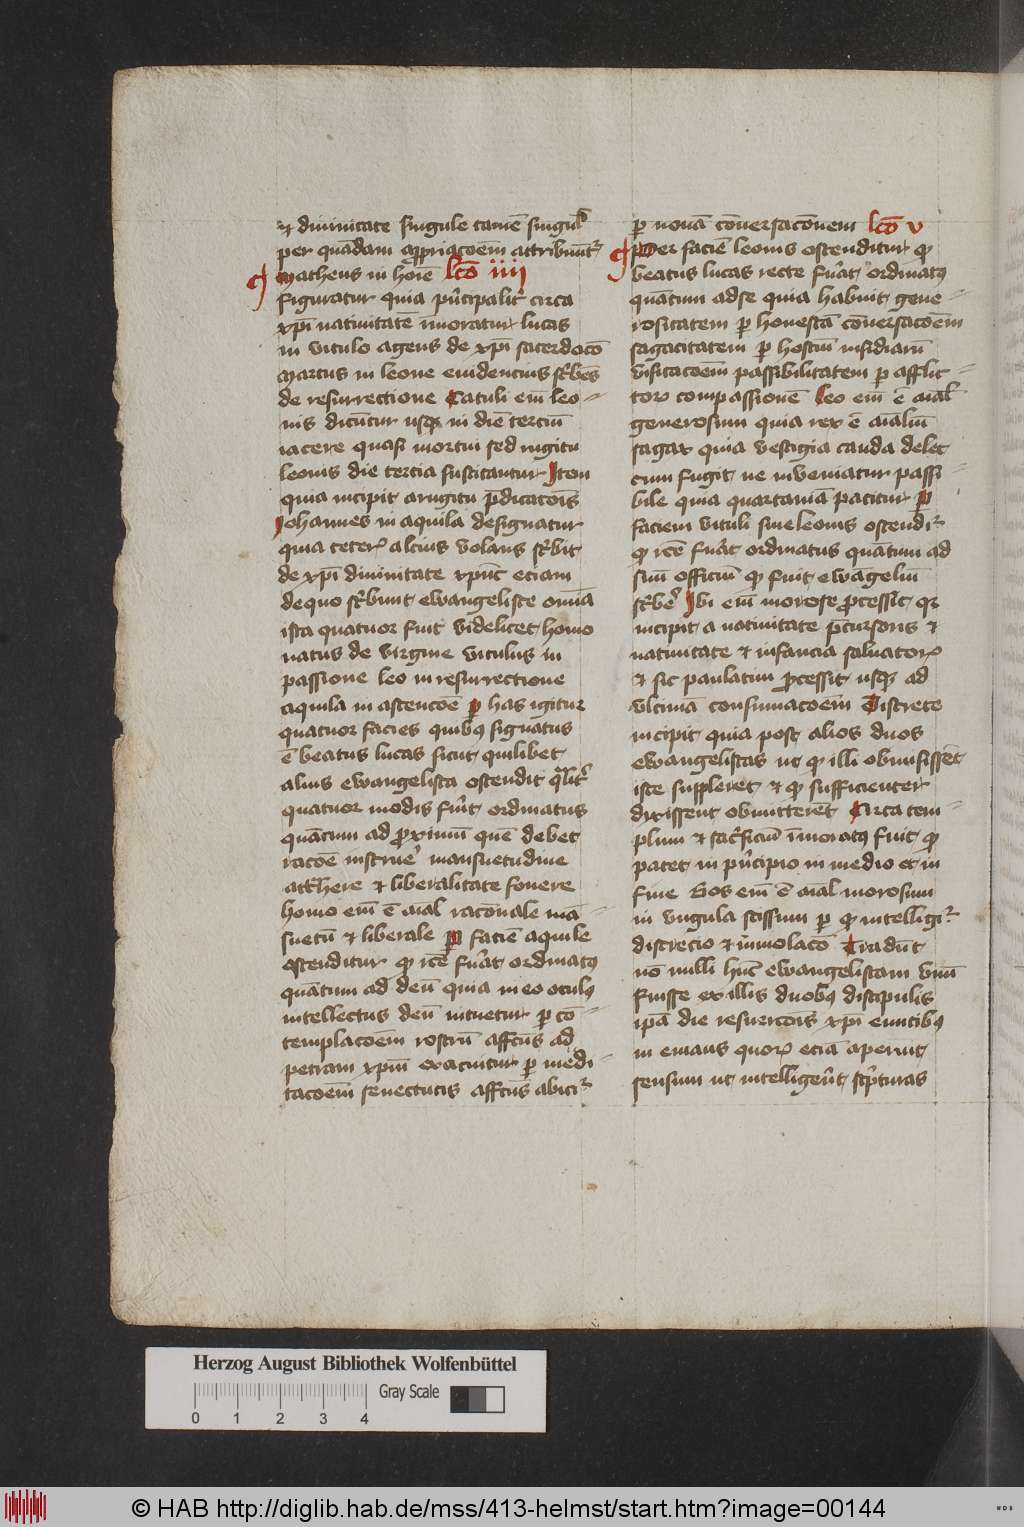 et diuinitate singule tamē singul'
per quādam appriacōem attribūnt͛
Matheus in hoīe lc̄o iiii
figuratur quia pn̄cipalit͛ circa
xp̄i natiuitatē īmoratur lucas
in vitulo agens de xp̄i sacerdocō
Marcus in leone euidencius sc͛bēs
de resurrectione Catuli em̄ leo-
nis dicūtur usqꝫ in diē terciū
iacere quasi mortui sed rugitu
leonis die tercia suscitantur Item
quia incipit a rugitu p̄dicatoīs
Iohannes in aquila designatur
quia ceteꝝ alcius volans sc͛bit
de xp̄i diuinitate xpūc eciam
de quo sc͛bunt ewangeliste omīa
ista quatuor fuit videlicet homo
natus de virgine vitulus in
passione leo in resurrectione
aquila in ascencōe ꝑ has igitur
quatuor facies quibꝰ signatus
ē beatus lucas sicut quilibet
alius ewangelista ostendit͛ q̄lit͛
quatuor modis fūit ordinatus
quātum ad ꝓximū quē debet
racōe instrue͛ mansuetudine
attͣhere et liberalitate fouere
homo em̄ ē aīal racōnale mā-
suetū et liberale Per faciē aquile
ostenditur qꝫ r̄cē fūat ordinatꝰ
quātum ad deū quia in eo oculꝰ
intellectus deū intuetur ꝑ cō-
templacōem rostrū affcūs ad
petram xp̄m exacuitur ꝑ medi-
tacōem senectutis affcūs abicit͛
ꝑ nouā cōuersacōnem lc̄o v
Per faciē leonis ostenditur qꝫ
beatus lucas recte fūat ordinatꝰ
quātum ad se quia habuit gene-
rositatem ꝑ honestā cōuersacōem
sagacitatem ꝑ hostiū insidiarū
visitacōem passibilitatem ꝑ afflic-
toꝝ compassionē Leo em̄ ē aīal'
generosum quia rex ē aīaliū
sagax quia vestigia cauda delet
cum fugit ne inveniatur passi-
bile quia quartaniā patitur Per
faciem vituli siue leonis ostendit͛
qꝫ r̄cē fūat ordinatus quātum ad
suū officiū qꝫ fuit ewāgeliū
sc͛be͛ Ibi em̄ morose ꝓcessit qꝛ
incipit a natiuitate p̄cursoris et
natiuitate et infancia saluatoꝝ
et sic paulatim ꝓcessit usqꝫ ad
vltimā consumacōem Discrete
incipit quia post alios duos
ewangelistas ut qꝫ illi obmisissēt
iste suppleret et qꝫ sufficienter
dixissent obmitteret Circa tem-
plum et sac͛ficiū īmoratꝰ fuit qꝫ
patet in pn̄cipio in medio et in
fine Bos em̄ ē aīal morosum
in vngula scissum ꝑ qꝫ intelligit͛
discrecio et īmolacō Tradūt
nō nulli hūc ewangelistam vnū
fuisse ex illis duobꝰ discipulis
ip̄a die resurrcōis xp̄i euntibꝰ
in emaus quoꝝ eciā aperuit
sensum ut intelligerēt sc͛pturas
Herzog August Bibliothek Wolfenbüttel
Gray Scale
0 1 2 3 4
© HAB http://diglib.hab.de/mss/413-helmst/start.htm?image=00144